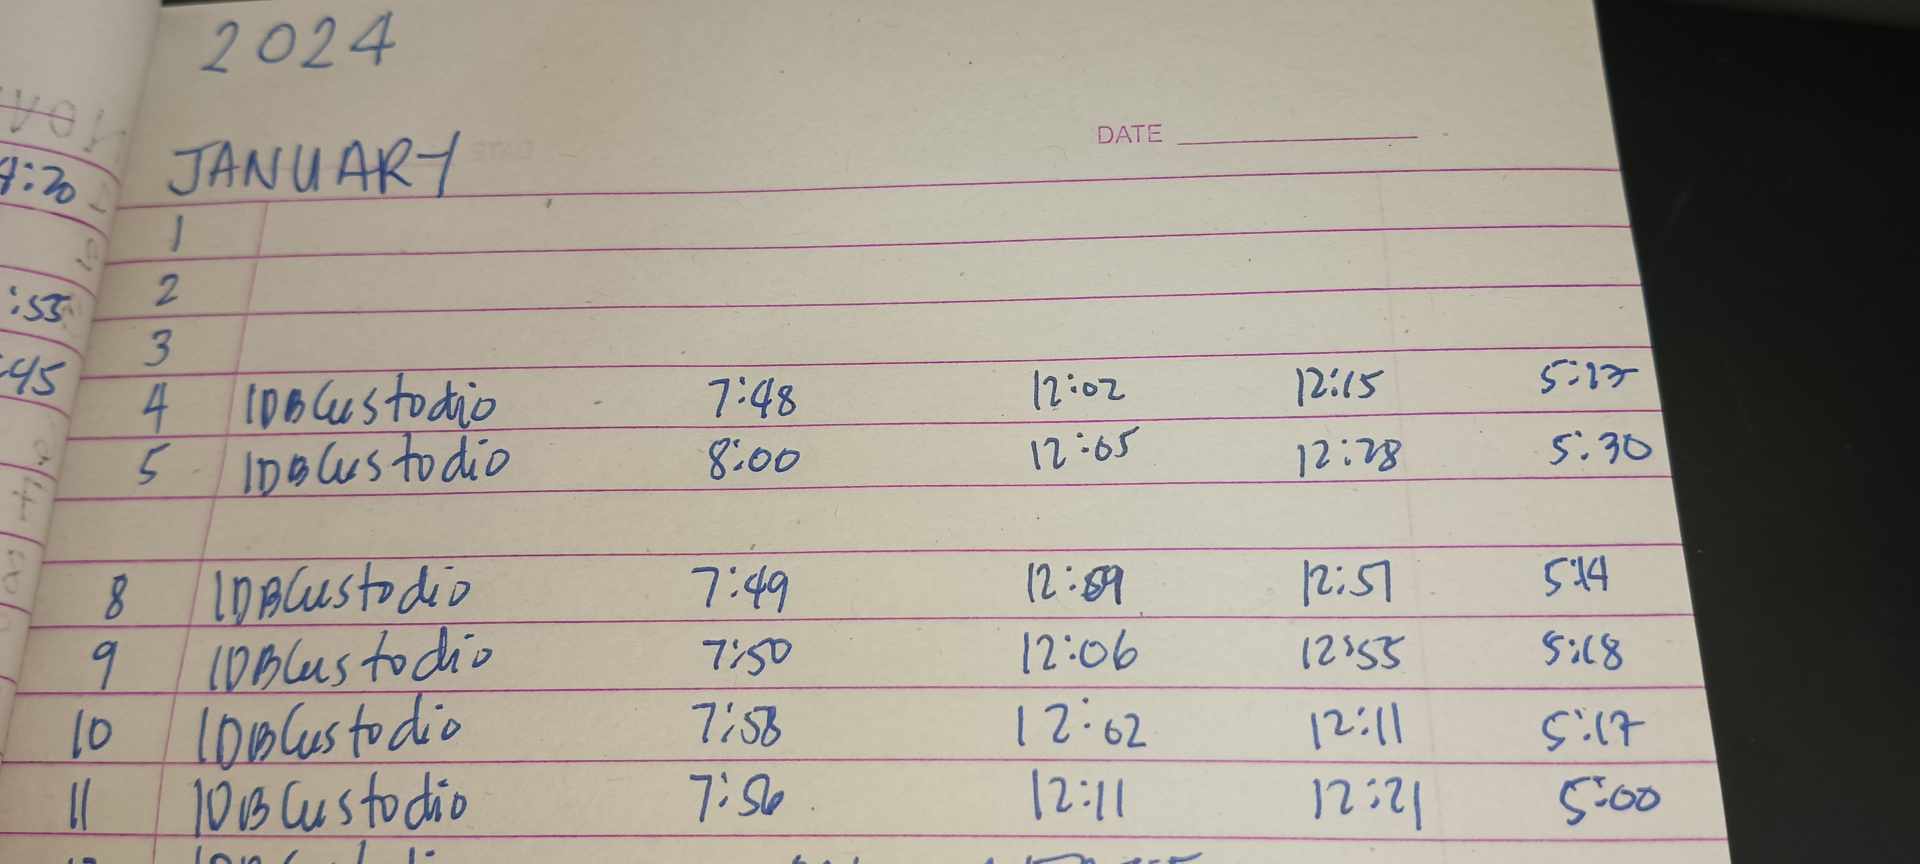 2024
DATE
JANUARY
1
2
3
4 IDBCustodio 7:48 12:02 12:15 5:17
5 IDBCustodio 8:00 12:05 12:28 5:30
8 IDBCustodio 7:49 12:09 12:51 5:14
9 IDBCustodio 7:50 12:06 12:55 5:18
10 IDBCustodio 7:58 12:02 12:11 5:17
11 IDBCustodio 7:56 12:11 12:21 5:00
:20
:55
45